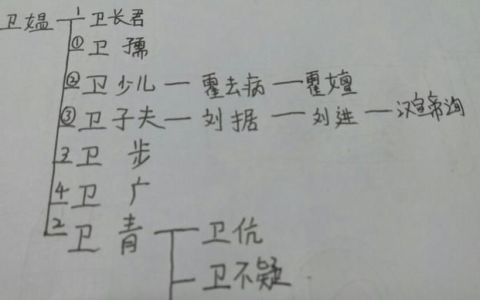 卫媪 1 卫长君
① 卫孺
② 卫少儿 — 霍去病 — 霍嬗
③ 卫子夫 — 刘据 — 刘进 — 汉宣帝询
3 卫步
4 卫广
2 卫青 — 卫伉
卫不疑